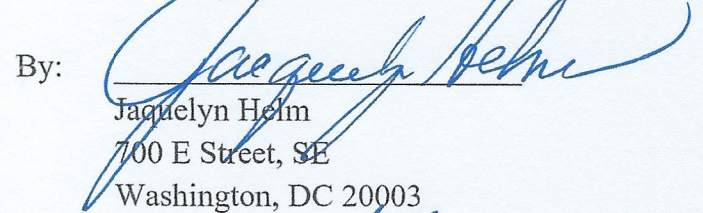 By: Jacquelyn Helm
Jaquelyn Helm
700 E Street, SE
Washington, DC 20003